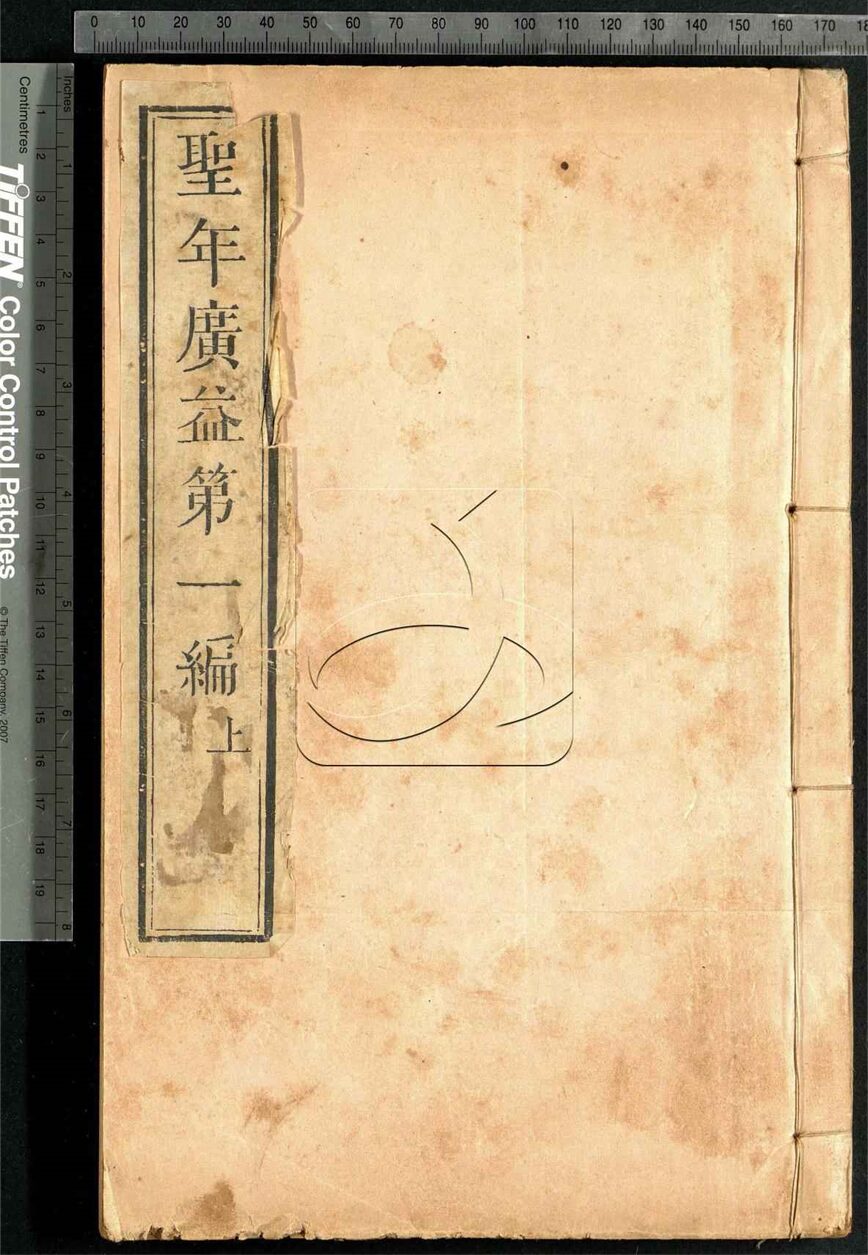 0 10 20 30 40 50 60 70 80 90 100 110 120 130 140 150 160 170 18
聖年廣益第一編上
Inches
1 2 3 4 5 6 7 8
Centimetres
1 2 3 4 5 6 7 8 9 10 11 12 13 14 15 16 17 18 19
TIFFEN® Color Control Patches
© The Tiffen Company, 2007